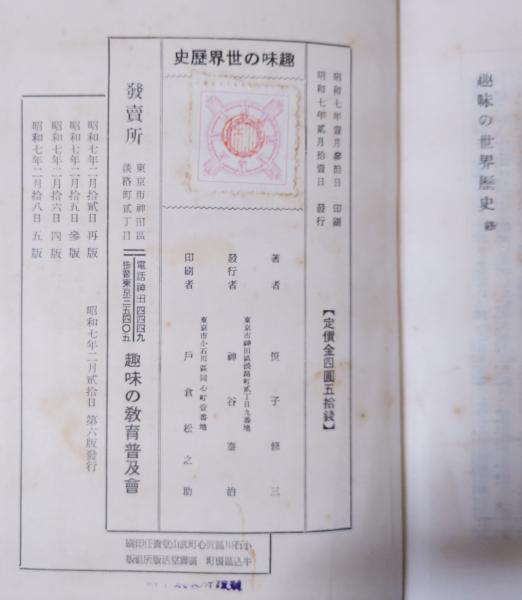 趣味の世界歷史 終
趣味の世界歷史
昭和七年壹月參拾日 印刷
昭和七年貳月拾壹日 發行
【定價金四圓五拾錢】
著者 笹子修三
東京市神田區淡路町貳丁目九番地
發行者 神谷泰治
東京市小石川區同心町壹番地
印刷者 戶倉松之助
發賣所
東京市神田區
淡路町貳丁目
電話神田四四四九
振替東京三五四〇五
趣味の敎育普及會
昭和七年二月拾貳日 再版
昭和七年二月拾五日 參版
昭和七年二月拾六日 四版
昭和七年二月拾八日 五版
昭和七年二月貳拾日 第六版發行
小石川區同心町武山堂責任印刷
牛込區榎町